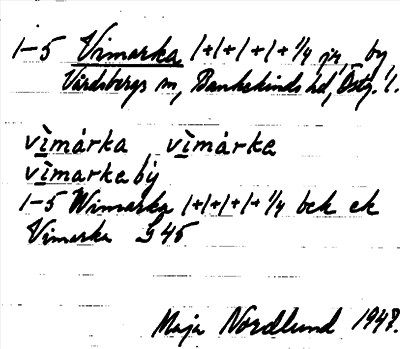 1-5 Vimarka 1+1+1+1+1/4 jn, by,
Vårdsbergs sn, Bankekinds hd, Östg. l.
vìmárka vìmárke
vìmarkebý
1-5 Wimarka 1+1+1+1+1/4 bek ek
Vimarka 945
Maja Nordlund 1947.